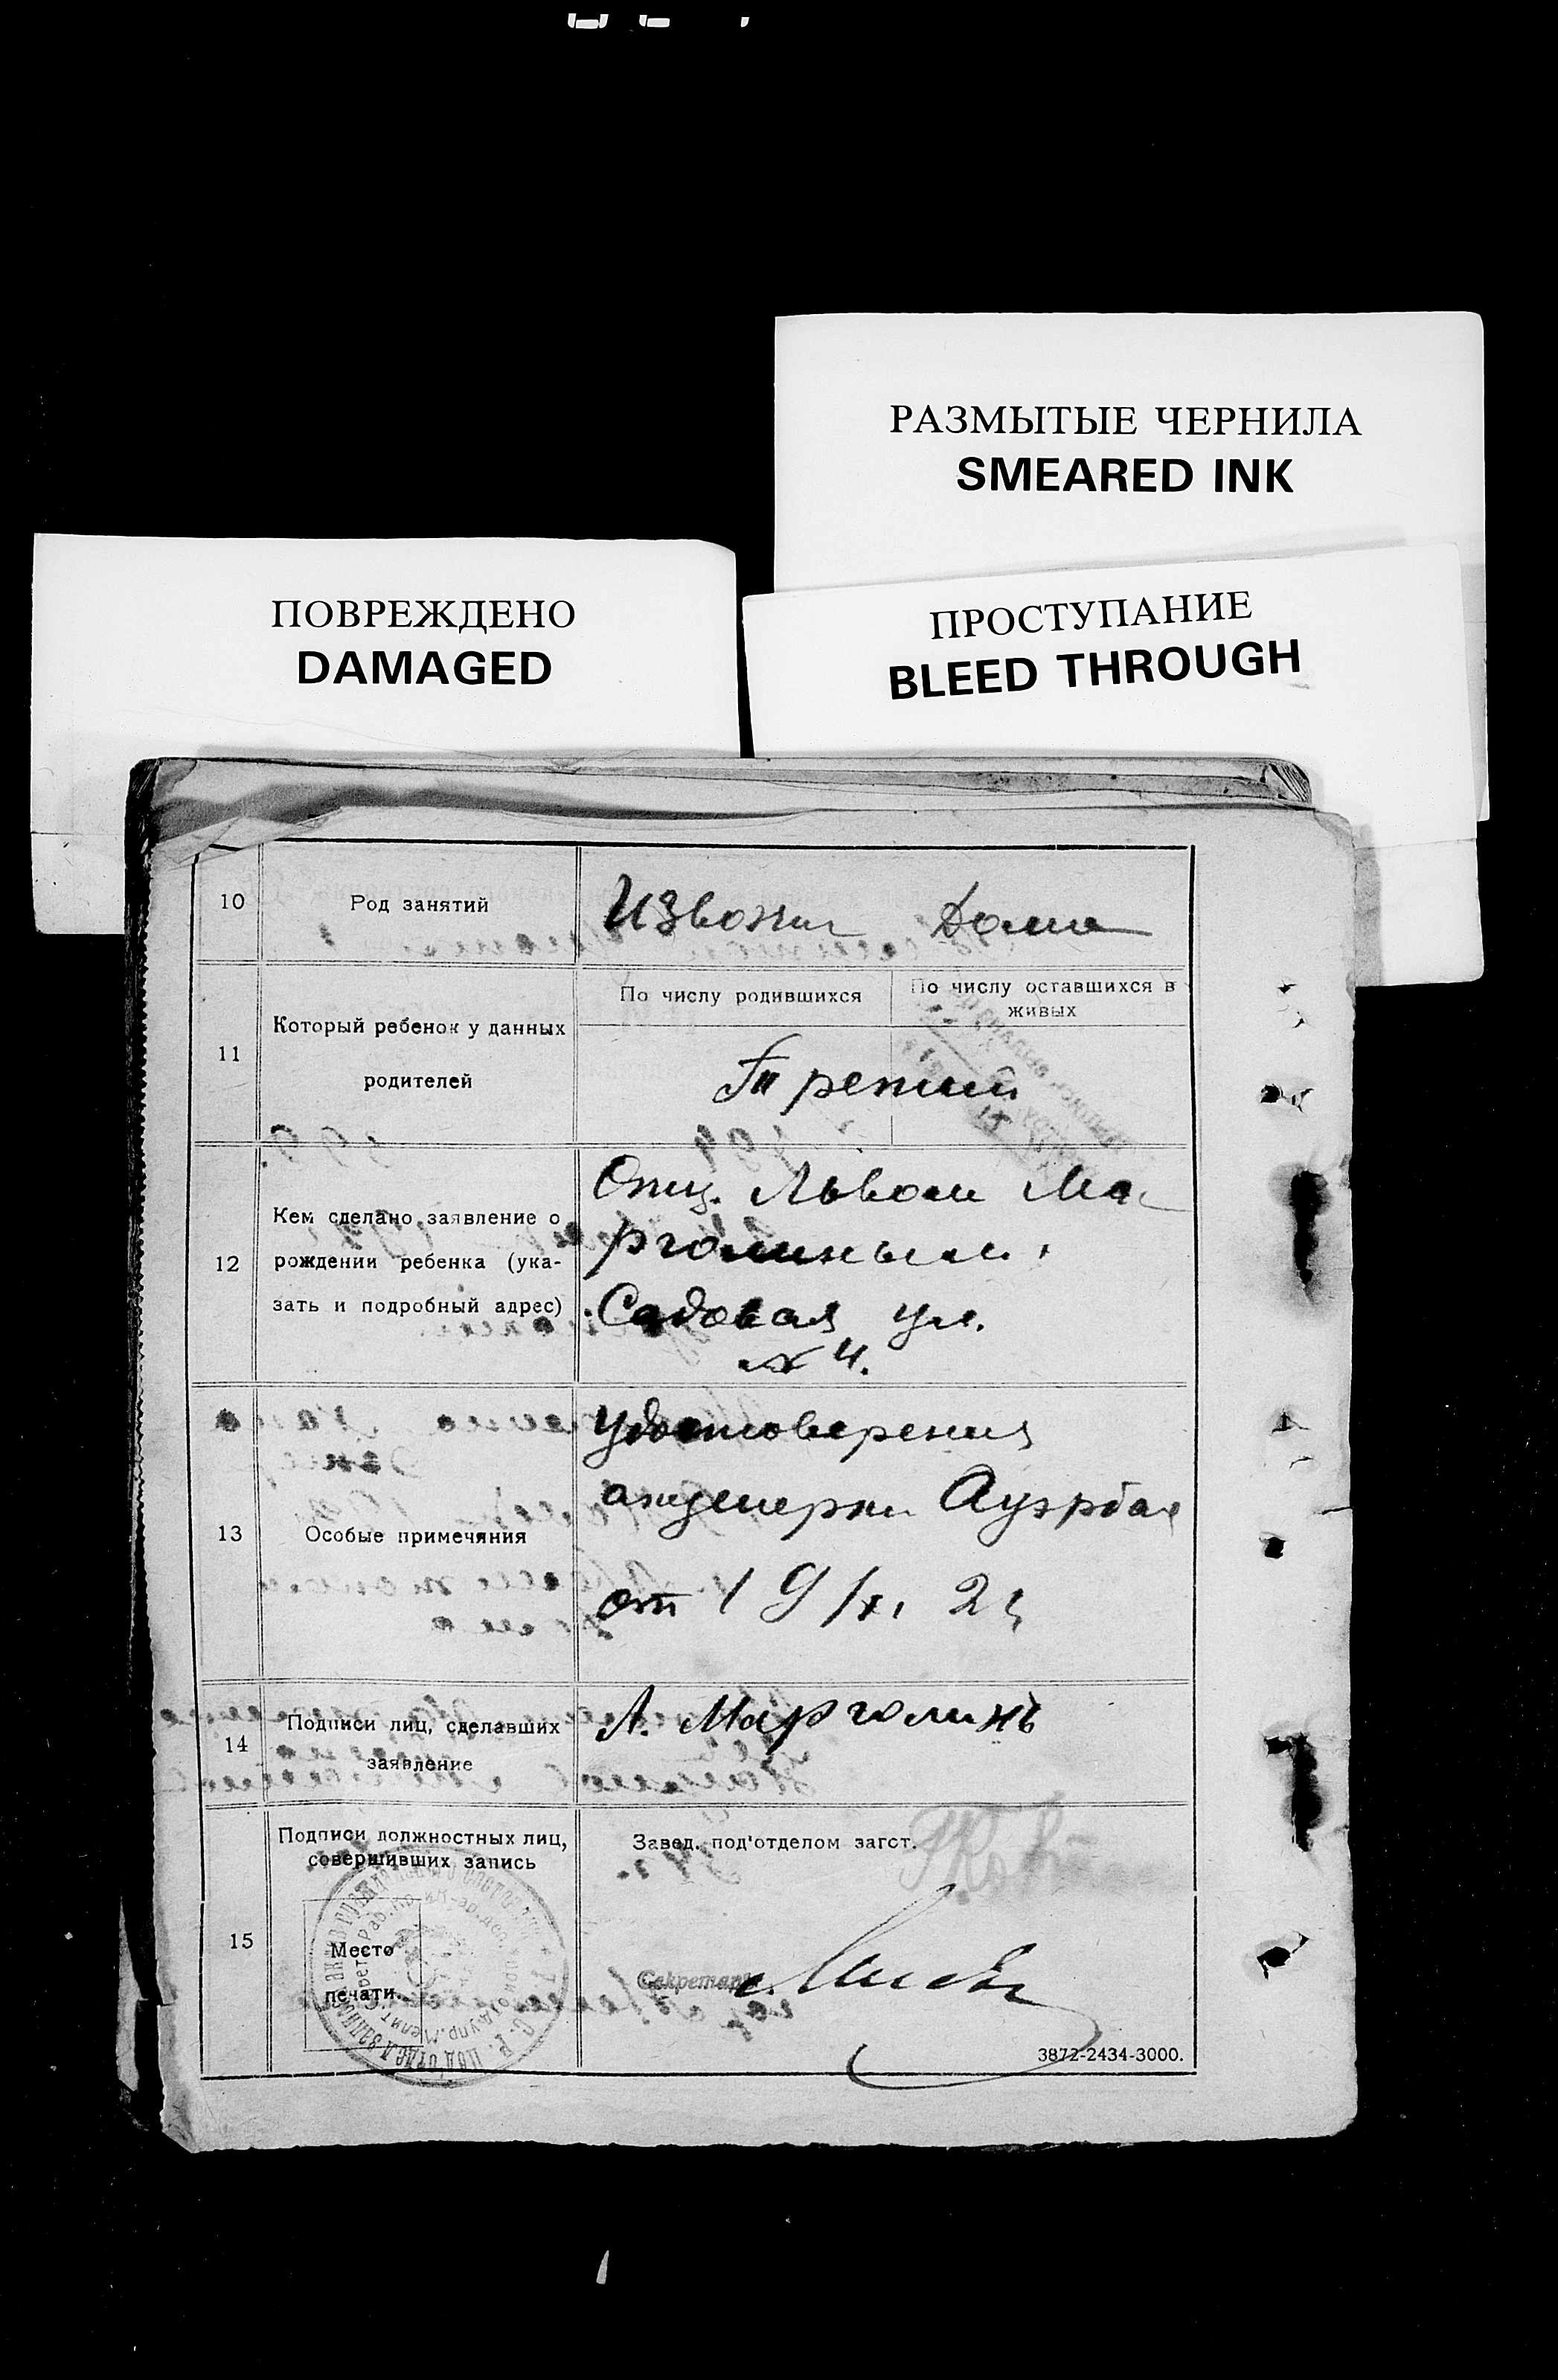 РАЗМЫТЫЕ ЧЕРНИЛА
SMEARED INK
ПОВРЕЖДЕНО
DAMAGED
ПРОСТУПАНИЕ
BLEED THROUGH
10
Род занятий
Извозчик Дома
11
Который ребенок у данных
родителей
По числу родившихся
По числу оставшихся в
живых
Третий
12
Кем сделано заявление о
рождении ребенка (ука-
зать и подробный адрес)
Отц. Львом Ма
рголиным
Садовая ул.
№ 4.
13
Особые примечания
Удостоверения
акушерки Ауэрбах
от 19/XI
14
Подписи лиц, сделавших
заявление
Л. Марголинъ
15
Подписи должностных лиц,
совершивших запись
Место
печати.
Завед. под'отделом загст.
Секретарь
3872-2434-3000.